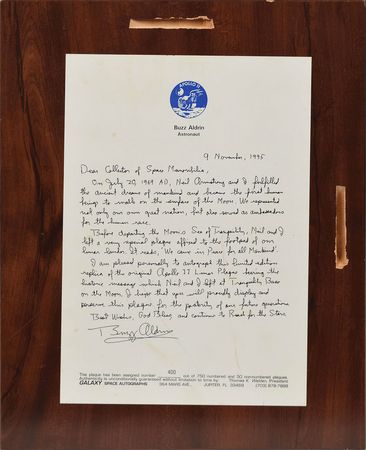 APOLLO 11
Buzz Aldrin
Astronaut
9 November, 1995
Dear Collector of Space Memorabilia,
On July 20, 1969 A.D., Neil Armstrong and I fulfilled
the ancient dreams of mankind and became the first human
beings to walk on the surface of the Moon. We represented
not only our own great nation, but also served as ambassadors
for the human race.
Before departing the Moon's Sea of Tranquility, Neil and I
left a very special plaque affixed to the footpad of our
lunar lander. It reads, We came in Peace for all Mankind.
I am pleased personally to autograph this limited edition
replica of the original Apollo 11 Lunar Plaque bearing the
historic message which Neil and I left at Tranquility Base
on the Moon. I hope that you will proudly display and
preserve this plaque for the posterity of our future generations.
Best Wishes, God Bless, and continue to Reach for the Stars.
Buzz Aldrin
This plaque has been assigned number 400 out of 750 numbered and 30 non-numbered plaques.
Authenticity is unconditionally guaranteed without limitation to time by: Thomas K. Welden, President
GALAXY SPACE AUTOGRAPHS JUPITER, FL 33458